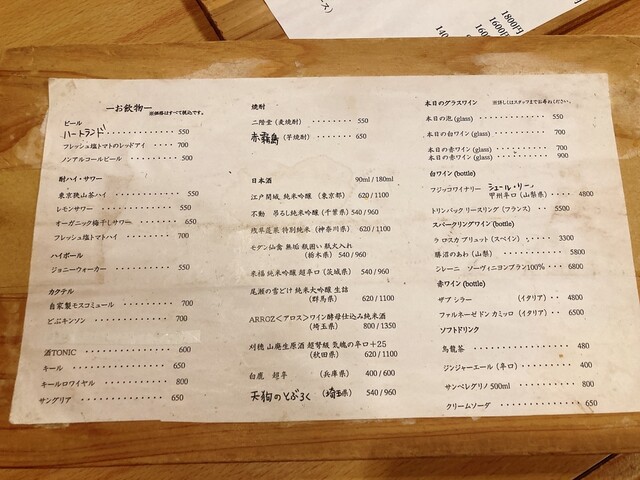 ス)
1800円
1600円
1600
140
―お飲物―
※価格はすべて税込です。
ビール
ハートランド 550
フレッシュ塩トマトのレッドアイ 700
ノンアルコールビール 500
酎ハイ・サワー
東京狭山茶ハイ 550
レモンサワー 550
オーガニック梅干しサワー 650
フレッシュ塩トマトハイ 700
ハイボール
ジョニーウォーカー 550
カクテル
自家製モスコミュール 700
どぶキンソン 700
酒TONIC 600
キール 650
キールロワイヤル 800
サングリア 650
焼酎
二階堂(麦焼酎) 550
赤霧島(芋焼酎) 650
日本酒 90ml / 180ml
江戸開城 純米吟醸 (東京都) 620 /1100
不動 吊るし純米吟醸(千葉県) 540 / 960
残草蓬莱 特別純米(神奈川県) 620 /1100
モダン仙禽 無垢 瓶囲い 瓶火入れ
(栃木県) 540 /960
来福 純米吟醸 超辛口(茨城県) 540 /960
尾瀬の雪どけ 純米大吟醸 生詰
(群馬県) 620 /1100
ARROZ<アロス>ワイン酵母仕込み純米酒
(埼玉県) 800 / 1350
刈穂 山廃生原酒 超弩級 気魄の辛口+25
(秋田県) 620 /1100
白鹿 超辛 (兵庫県) 400 / 600
天狗のどぶろく (埼玉県) 540 /960
本日のグラスワイン ※詳しくはスタッフまでお尋ねください。
本日の泡 (glass) 550
本日の白ワイン (glass) 700
本日の赤ワイン (glass) 700
本日の赤ワイン (glass) 900
白ワイン (bottle)
フジッコワイナリー シュール・リー
甲州辛口 (山梨県) 4800
トリンバック リースリング (フランス) 5500
スパークリングワイン (bottle)
ラ ロスカ ブリュット (スペイン) 3300
勝沼のあわ (山梨) 5800
シレーニ ソーヴィニヨンブラン100% 6800
赤ワイン (bottle)
ザブ シラー (イタリア) 4800
ファルネーゼドン カミッロ (イタリア) 6500
ソフトドリンク
烏龍茶 480
ジンジャーエール (辛口) 400
サンペレグリノ 500ml 800
クリームソーダ 650